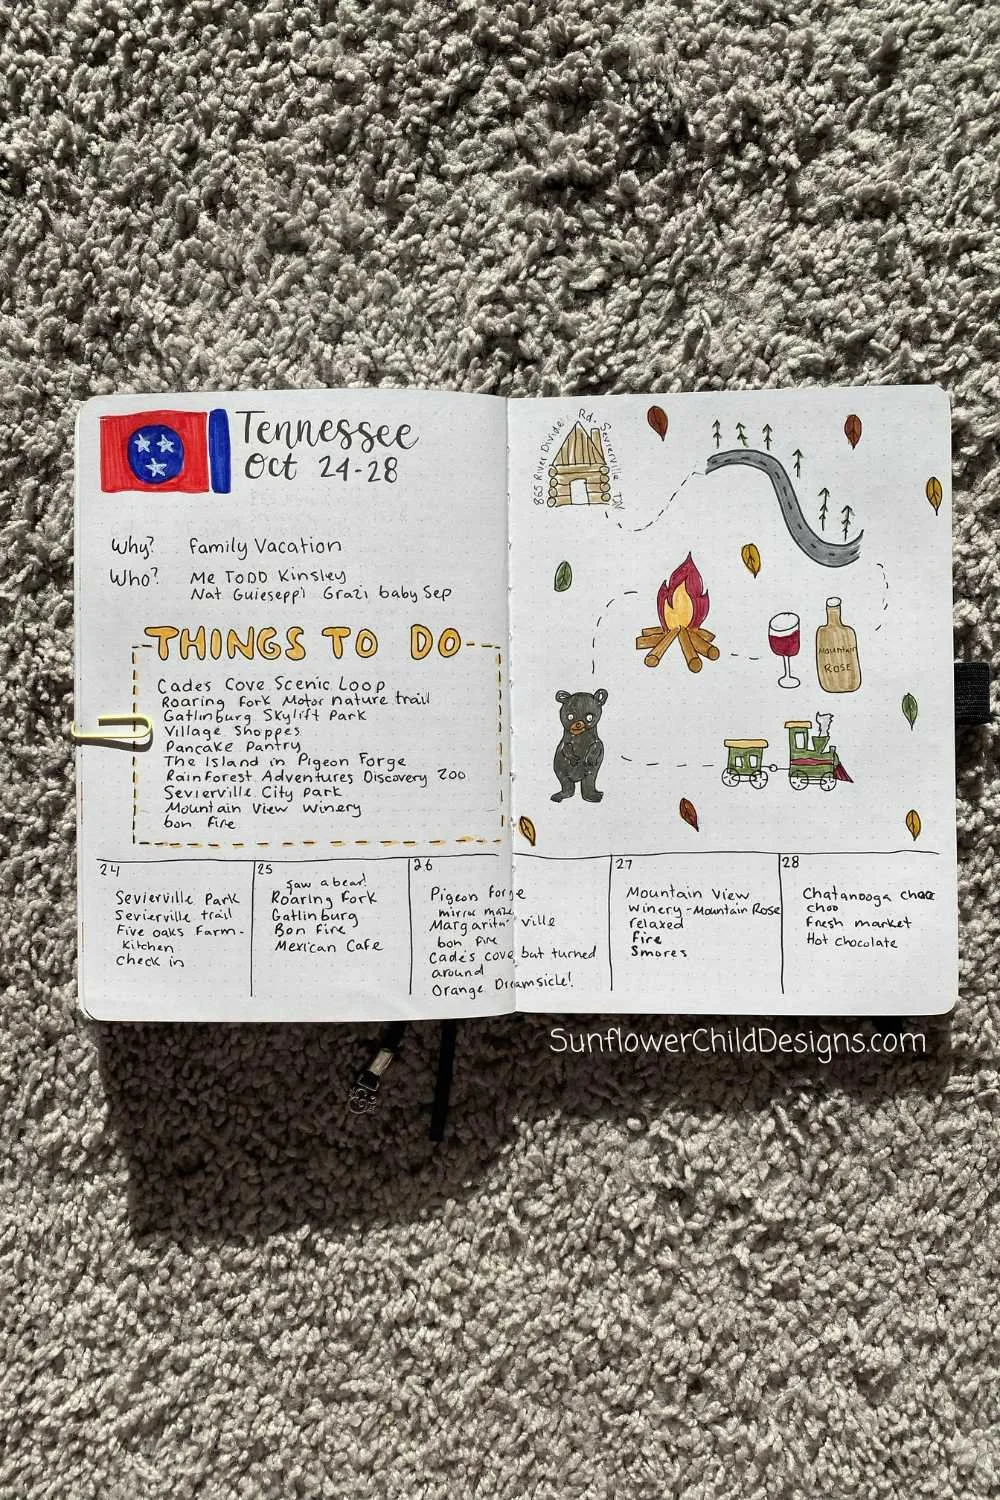 Tennessee
Oct 24-28
Why? Family Vacation
Who? Me TODD Kinsley
Nat Guieseppi Grazi baby Sep
THINGS TO DO
Cades Cove Scenic Loop
Roaring Fork Motor nature trail
Gatlinburg Skylift Park
Village Shoppes
Pancake Pantry
The Island in Pigeon Forge
Rainforest Adventures Discovery Zoo
Sevierville City Park
Mountain View Winery
bon fire
865 River Divide Rd. Sevierville TN
Mountain
Rose
24
Sevierville Park
Sevierville trail
Five oaks Farm-
Kitchen
check in
25
saw a bear!
Roaring Fork
Gatlinburg
Bon fire
Mexican Cafe
26
Pigeon Forge
mirror maze
Margarita ville
bon fire
Cade's cove but turned
around
Orange Dreamsicle!
27
Mountain View
Winery-Mountain Rose
relaxed
Fire
Smores
28
Chatanooga choo
choo
Fresh market
Hot Chocolate
SunflowerChildDesigns.com